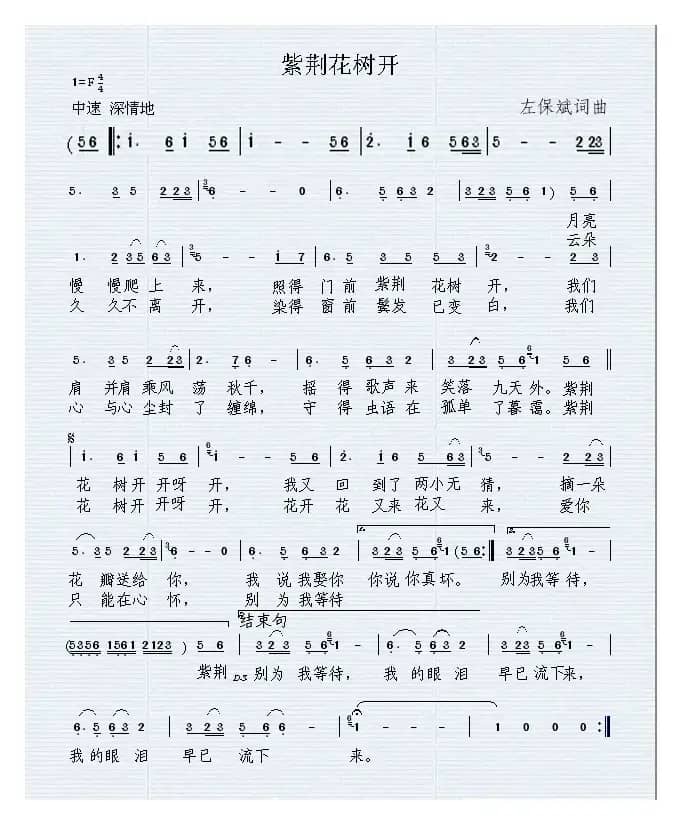 紫荆花树开
1=F 4/4
中速 深情地
左保斌词曲
(56 ‖: 1· 6 1 | 56 - - 56 | 1 - - 56 | 2· 16 563 | 5 - - 223 |
5· 35 223 | 36 - - 0 | 6· 5632 | 123 56 1) 56 |
月亮
云朵
1· 235 63 | 35 - - 17 | 6·5 3 5 53 | 32 - - 23 |
慢 慢爬上 来, 照得门前 紫荆 花树 开, 我们
久 久不离 开, 染得窗前 鬓发 已变 白, 我们
5· 35 2 23 | 2· 76 - | 6· 5632 | 3 23 56 61 | 5 - - 56 ‖
肩 并肩 乘风 荡 秋千, 摇 得 歌声来 笑落 九天 外。紫荆
心 与心 尘封 了 缠绵, 守 得 虫语在 孤单 了暮霭。紫荆
1· 61 56 | 61 - - 56 | 2· 16 5 63 | 35 - - 223 |
花 树开 开呀 开, 我又 回 到了 两小无 猜, 摘一朵
花 树开 开呀 开, 花开 花 又来 花又 来, 爱你
5· 35 2 23 | 36 - - 0 | 6· 5632 | 323 56 61 (56 :‖ 32356 61 - |
花 瓣送给 你, 我 说我娶你 你说你真坏。 别为我等待,
只 能在心 怀, 别 为我等待
结束句
(5356 1561 2123) 56 | 323 56 61 - | 6· 5632 | 323 56 61 - |
紫荆 D.S 别为 我等待, 我 的眼 泪 早已 流下来,
6· 5632 | 323 5 66 | - - | 61 - - - | 1 0 0 0 :‖
我的眼 泪 早已 流下 来。